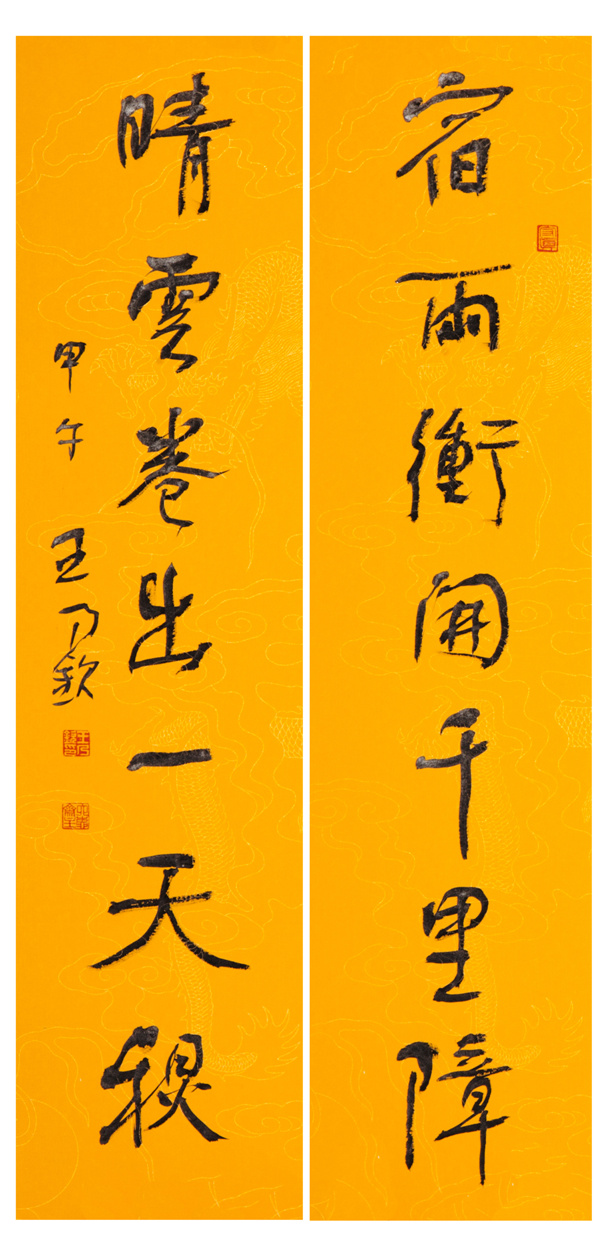 宿雨衝開千里障
晴雲卷出一天秋
甲午 王乃欽